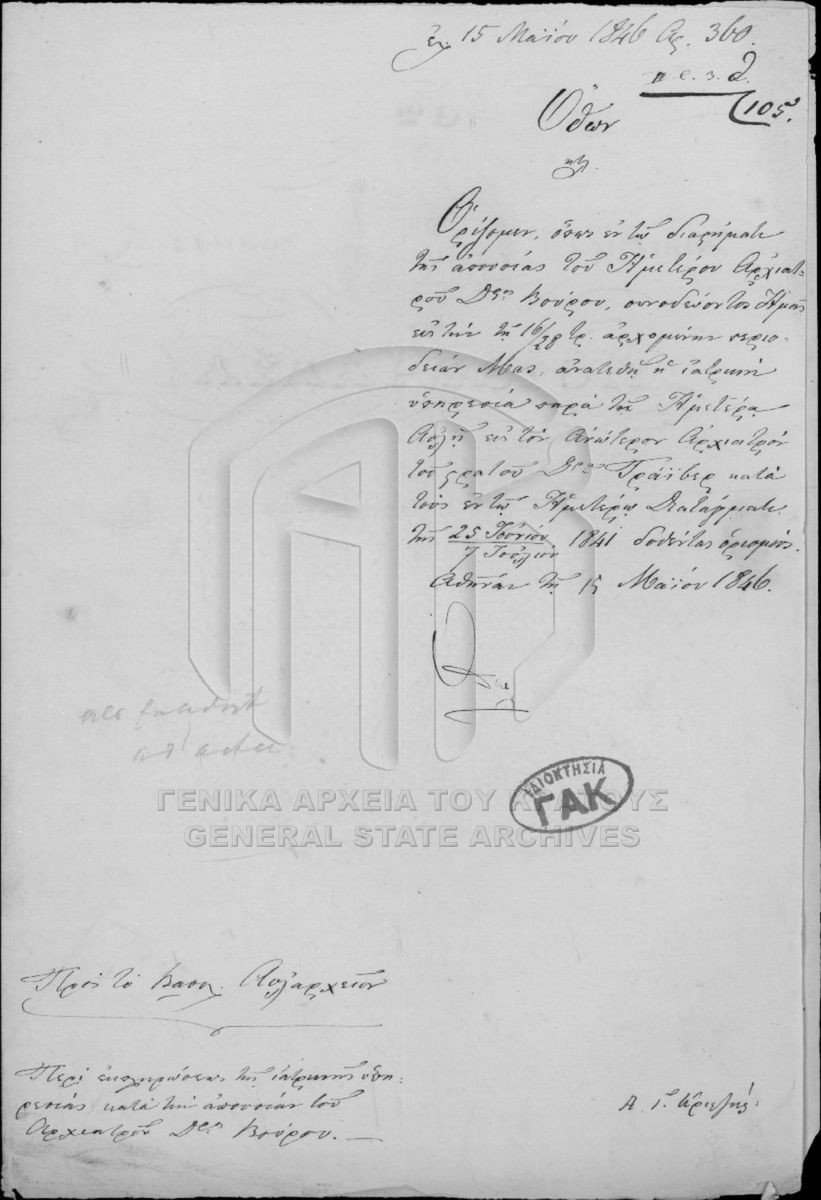 ἐχ 15 Μαϊου 1846 Ἀρ. 360.
105.
Ὄθων
κτλ.
Ὁρίζομεν, ὅπως ἐν τῷ διαστήματι
τῆς ἀπουσίας τοῦ Ἡμετέρου Ἀρχιατ-
ροῦ Δρος Βούρου, συνοδεύοντος Ἡμᾶς
εἰς τὴν τῇ 16/28 τρ. ἀρχομένην περιο-
δείαν Μας, ἀνατεθῇ ἡ ἰατρικὴ
ὑπηρεσία παρὰ τῇ Ἡμετέρᾳ
Αὐλῇ εἰς τὸν Ἀνώτερον Ἀρχιατρὸν
τοῦ στρατοῦ Δρα Τράϊβερ κατὰ
τοὺς ἐν τῷ Ἡμετέρῳ Διατάγματι
τῆς 25 Ἰουνίου / 7 Ἰουλίου 1841 δοθέντας ὁρισμούς.
Ἀθῆναι τῇ 15 Μαϊου 1846.
ΙΔΙΟΚΤΗΣΙΑ
ΓΑΚ
ΓΕΝΙΚΑ ΑΡΧΕΙΑ ΤΟΥ ΚΡΑΤΟΥΣ
GENERAL STATE ARCHIVES
Πρὸς τὸ Βασιλ. Αὐλαρχεῖον
Περὶ ἐκπληρώσεως τῆς ἰατρικῆς ὑπη-
ρεσίας κατὰ τὴν ἀπουσίαν τοῦ
Ἀρχιατροῦ Δρος Βούρου.